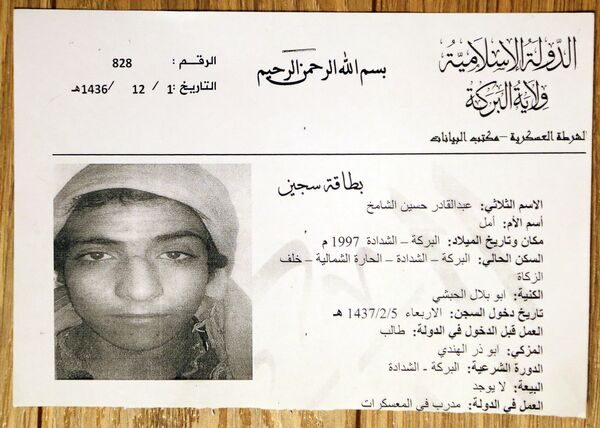 الدولة الإسلامية
ولاية البركة
الشرطة العسكرية - مكتب البيانات
بسم الله الرحمن الرحيم
الرقم : 828
التاريخ :1 / 12 /1436هـ
بطاقة سجين
الاسم الثلاثي: عبدالقادر حسين الشامخ
أسم الأم: أمل
مكان وتاريخ الميلاد: البركة – الشدادة 1997 م
السكن الحالي: البركة – الشدادة – الحارة الشمالية – خلف
الزكاة
الكنية: ابو بلال الحبشي
تاريخ دخول السجن: الاربعاء 1437/2/5 هـ
العمل قبل الدخول في الدولة: طالب
المزكي: ابو ذر الهندي
الدورة الشرعية: البركة - الشدادة
البيعة: لا يوجد
العمل في الدولة: مدرب في المعسكرات